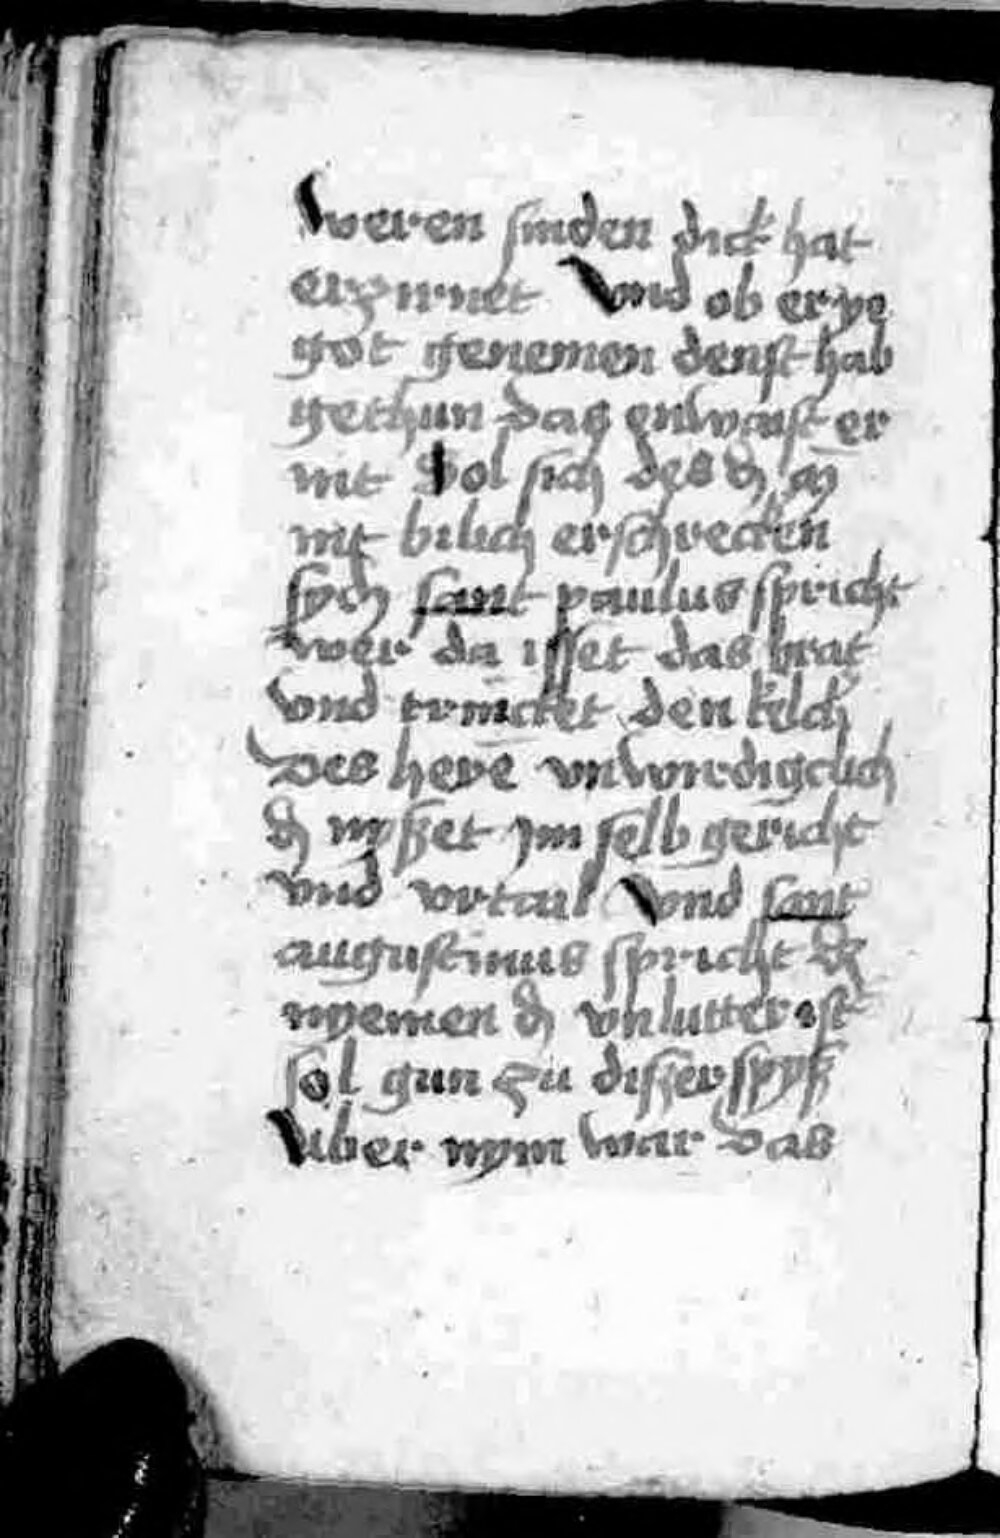 weren sinden dick hat
erzurnet Vnd ob er ye
got genemen denst hab
gethun das enwaist er
nit Sol sich des
nit bilich erschrecken
sych sant paulus spricht
wer da isset das brat
vnd trincket den kelch
des here vnwirdigclich
nysset jm selb gericht
vnd vrtail Vnd sant
augustinus spricht
nyemen vnlutter ist
sol gun zu disser spyß
Aber nym war das